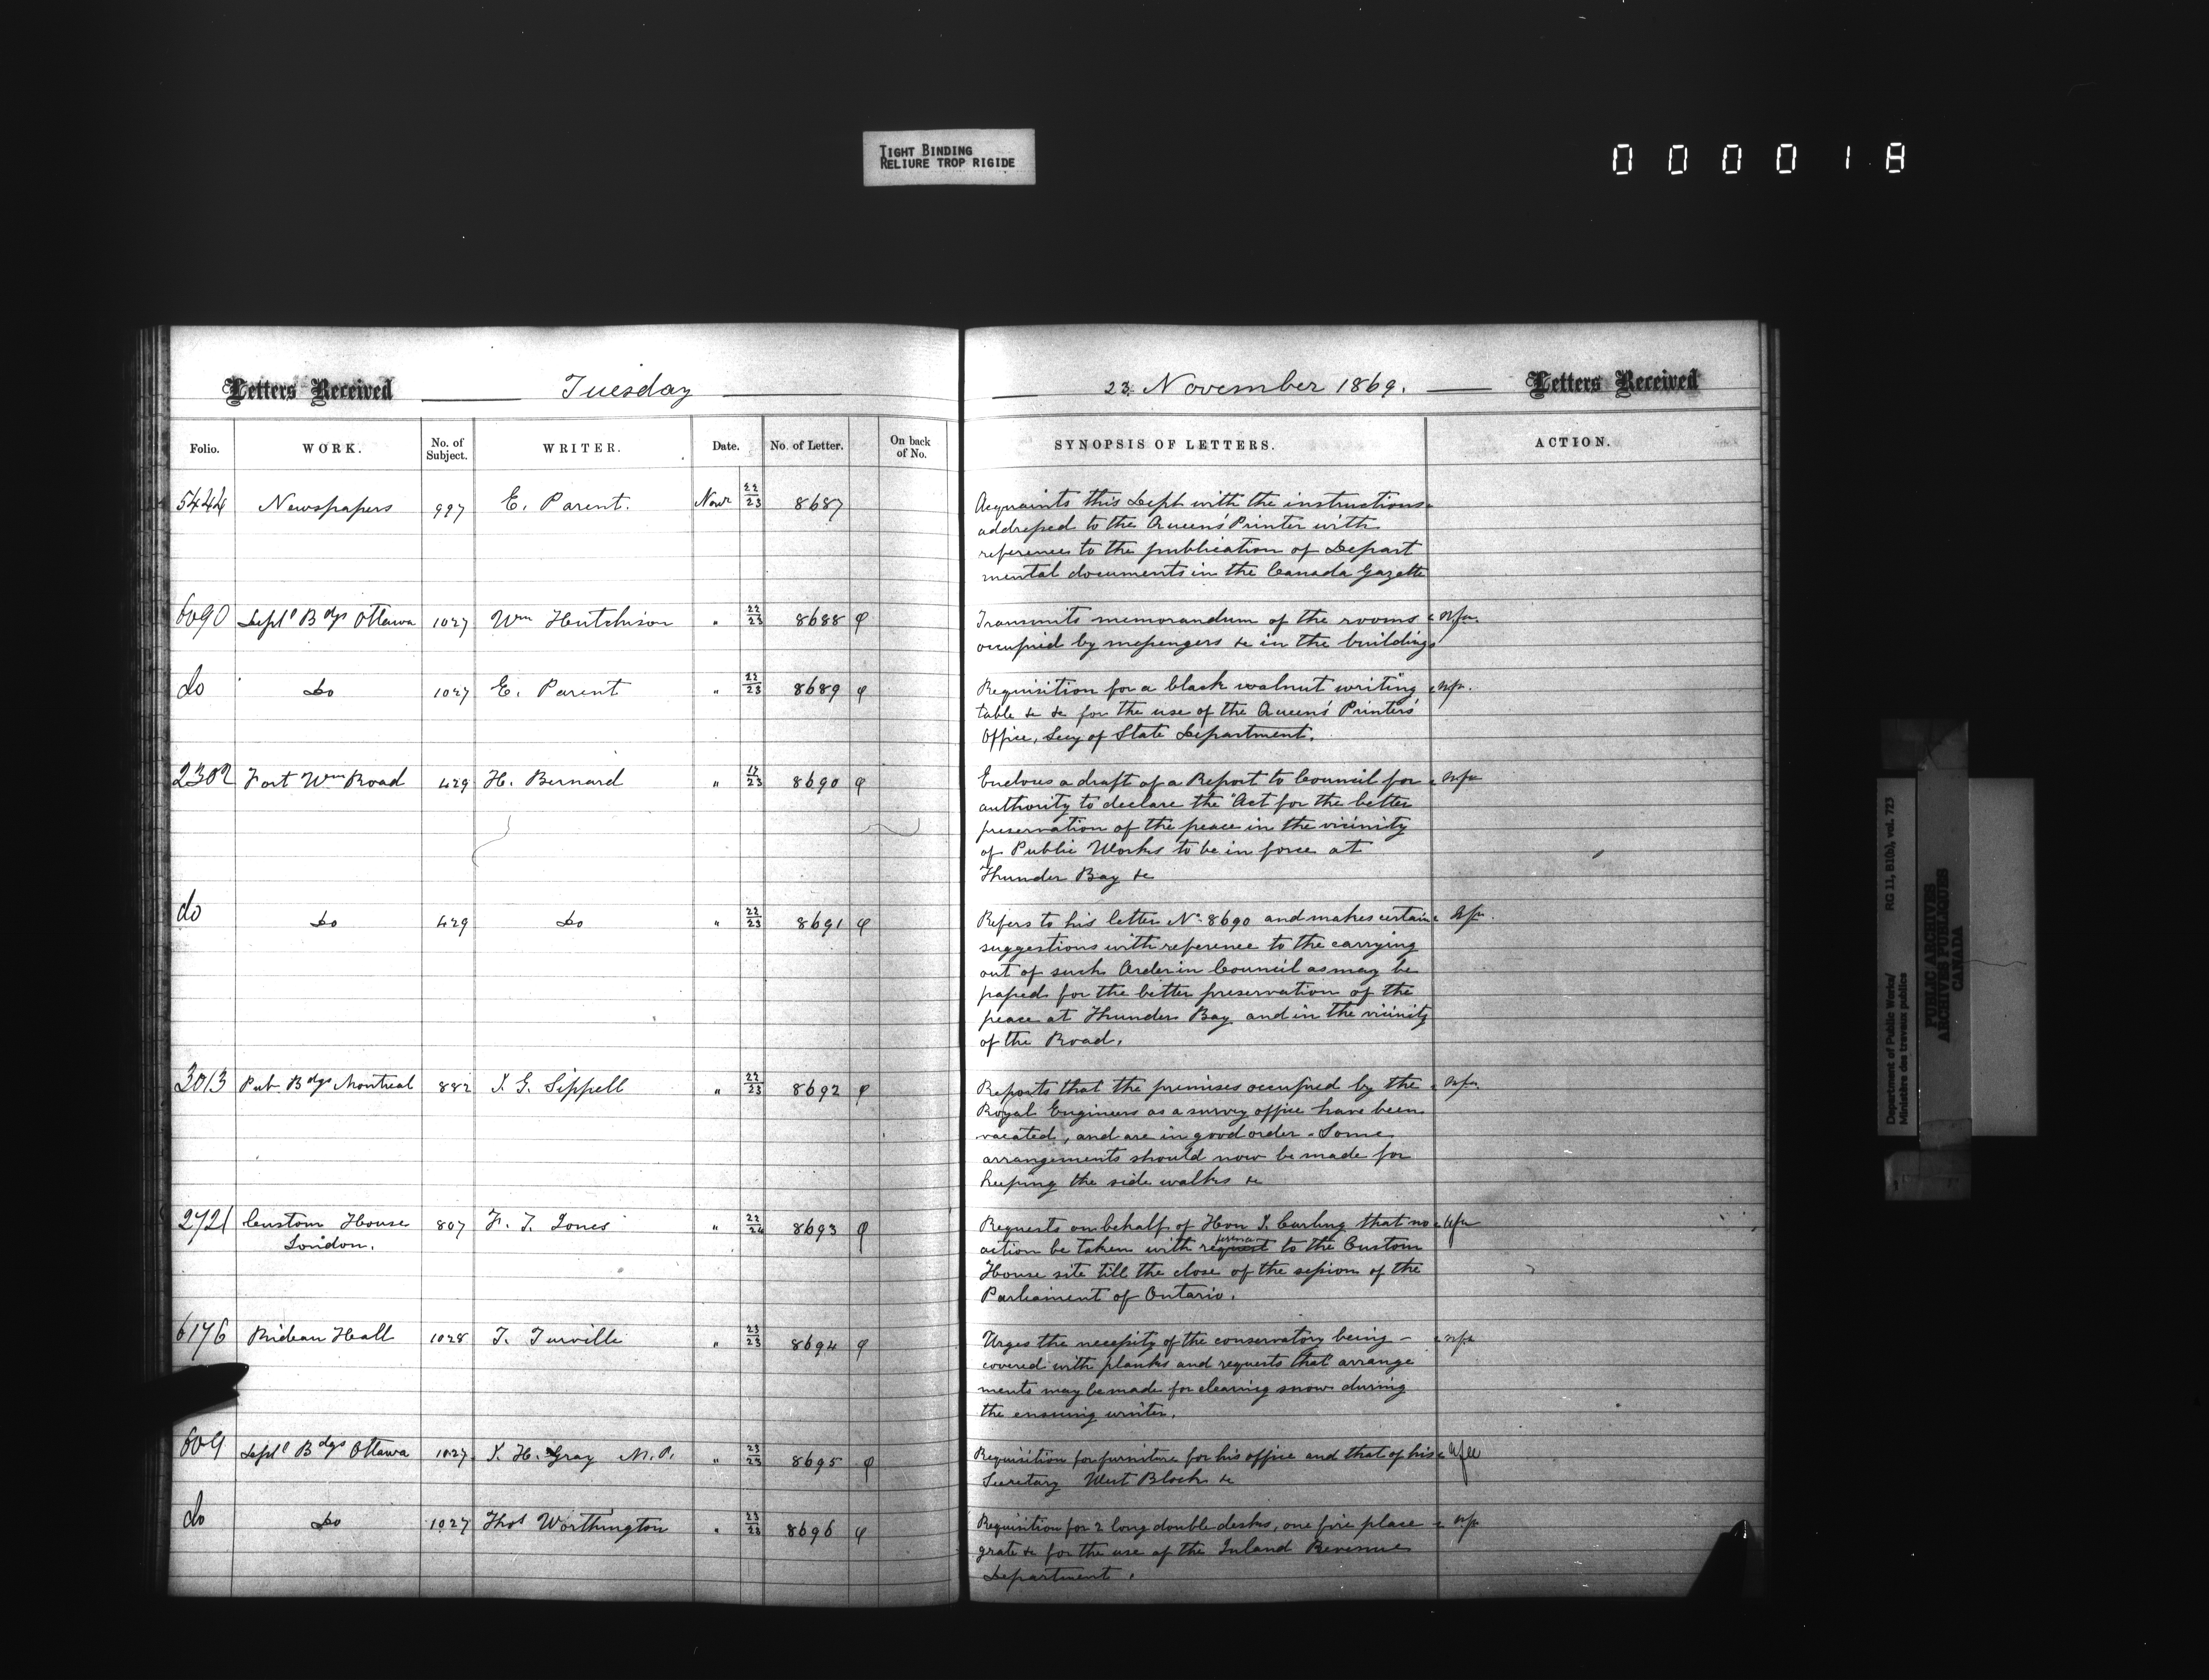 TIGHT BINDING
RELIURE TROP RIGIDE
0 0 0 0 1 8
Letters Received Tuesday
Folio. WORK. No. of Subject. WRITER. Date. No. of Letter. On back of No.
5444 Newspapers 997 E. Parent. Novr 22/23 8687
6090 Deptl Bdgs Ottawa 1027 Wm Hutchison " 22/23 8688 φ
do Do 1027 E. Parent " 22/23 8689 φ
2302 Fort Wm Road 429 H. Bernard " 17/23 8690 φ
do Do 429 Do " 22/23 8691 φ
3013 Pub. Bdgs Montreal 882 J. G. Sippell " 22/23 8692 φ
2721 Custom House 807 F. T. Jones " 22/24 8693 φ
London.
6176 Rideau Hall 1028 T. Turville " 23/23 8694 φ
609 Deptl Bdgs Ottawa 1027 J. H. Gray M.P. " 23/23 8695 φ
do Do 1027 Thos Worthington " 23/23 8696 φ
23. November 1869. Letters Received
SYNOPSIS OF LETTERS. ACTION.
Acquaints this Dept with the instructions
addressed to the Queen's Printer with
reference to the publication of Depart
mental documents in the Canada Gazette
Transmits memorandum of the rooms
occupied by messengers &c in the buildings
Requisition for a black walnut writing
table &c &c for the use of the Queen's Printers'
Office, Secy of State Department.
Encloses a draft of a Report to Council for
authority to declare the "Act for the better
preservation of the peace in the vicinity
of Public Works to be in force at
Thunder Bay &c
Refers to his letter No. 8690 and makes certain
suggestions with reference to the carrying
out of such Order in Council as may be
passed for the better preservation of the
peace at Thunder Bay and in the vicinity
of the Road.
Reports that the premises occupied by the
Royal Engineers as a survey office have been
vacated, and are in good order. Some
arrangements should now be made for
keeping the side walks &c
Requests on behalf of Hon J. Carling that no
action be taken with request to the Custom
House site till the close of the session of the
Parliament of Ontario.
Urges the necessity of the conservatory being -
covered with planks and requests that arrange
ments may be made for clearing snow during
the ensuing winter.
Requisition for furniture for his office and that of his
Secretary West Block &c
Requisition for 2 long double desks, one fire place
grate &c for the use of the Inland Revenue
Department.
Department of Public Works/ RG 11, B1(b), vol. 723
Ministère des travaux publics
PUBLIC ARCHIVES
ARCHIVES PUBLIQUES
CANADA